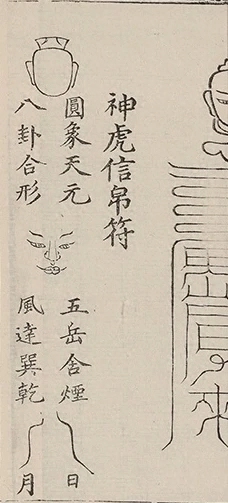 神虎信帛符
圓象天元
五岳含煙
日
八卦合形
風達巽乾
月